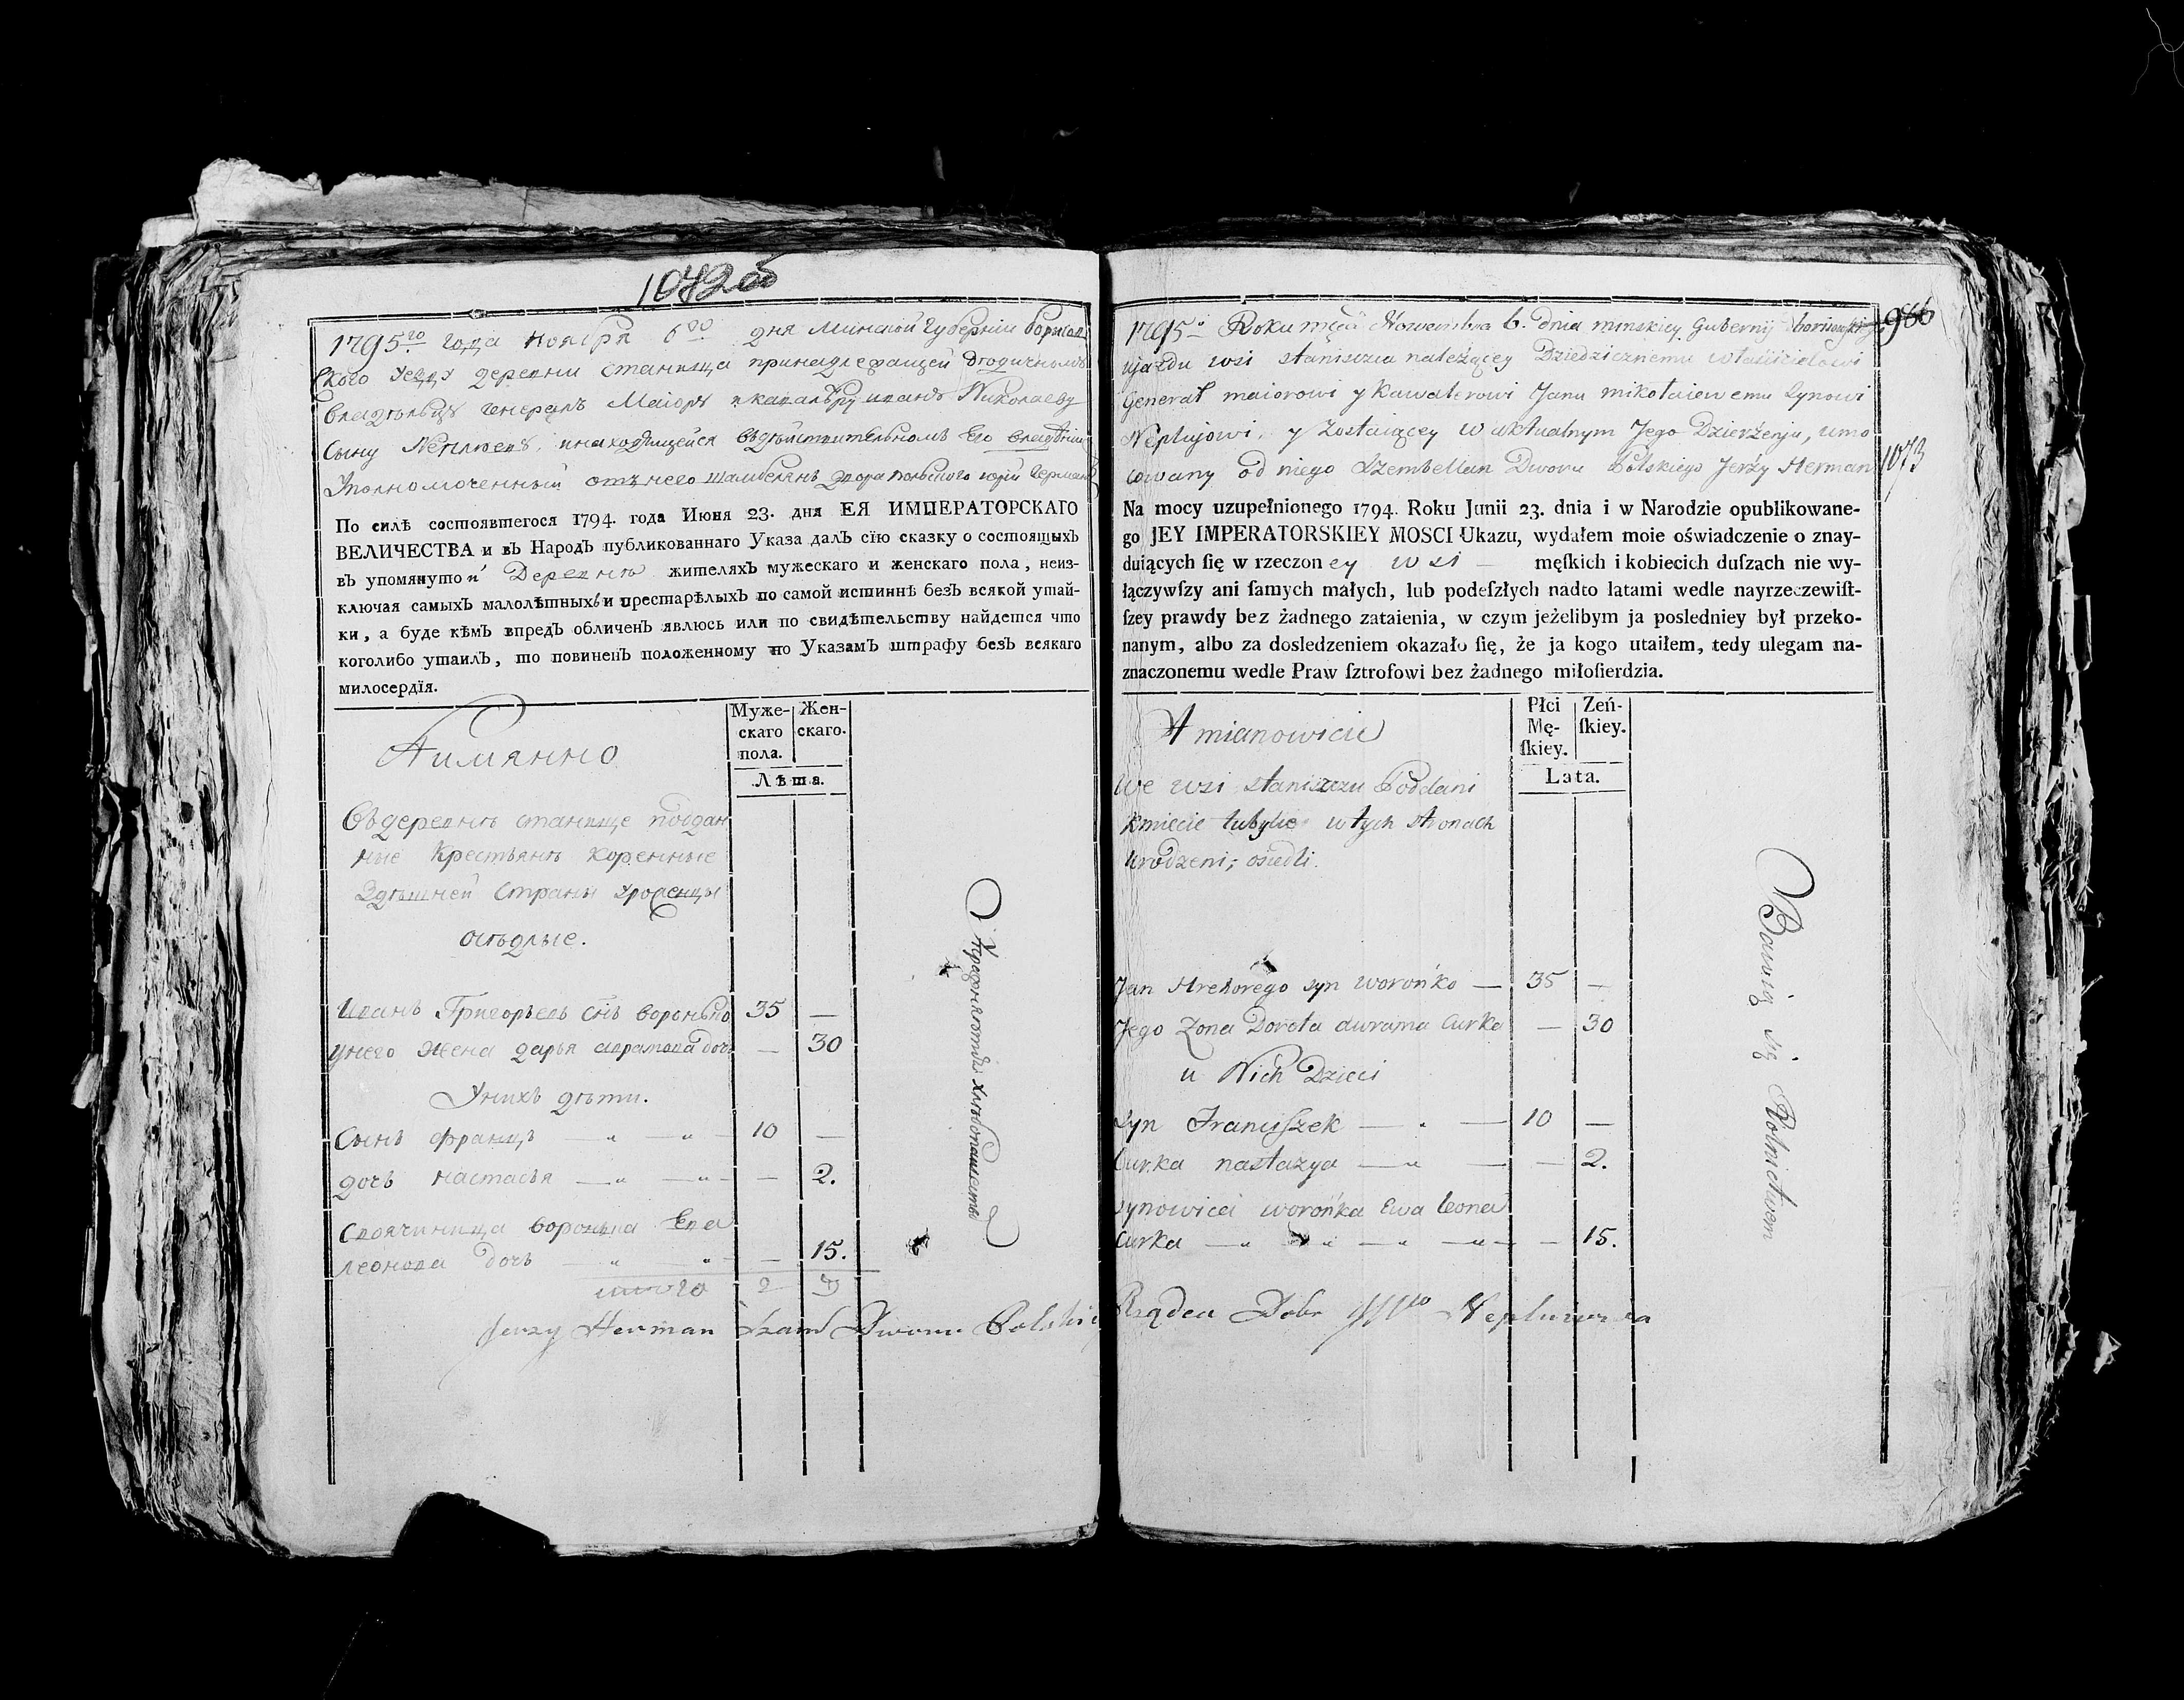 1072об
1795го года Ноября 6го дня Минской губернии борисов
ского уезду деревни станища принадлежащей дедичному
владѣльцу генералъ Маіору и кавалѣру ивану Николаеву
сыну Неплюеву, инаходящейся въдѣйствительномъ Его владѣнии
Уполномоченный отънего шамбелянъ двора польского юрiй Германъ
По силѣ состоявшегося 1794. года Июня 23. дня ЕЯ ИМПЕРАТОРСКАГО
ВЕЛИЧЕСТВА и въ Народъ публикованнаго Указа далъ сїю сказку о состоящыхъ
въ упомянутой Деревнѣ жителяхъ мужескаго и женскаго пола, неиз-
ключая самыхъ малолѣтныхъ и престарѣлыхъ по самой истиннѣ безъ всякой утай-
ки, а буде кѣмъ впредъ обличенъ явлюсь или по свидѣтельству найдется что
коголибо утаилъ, то повиненъ положенному по Указамъ штрафу безъ всякаго
милосердїя.
Аимянно
Муже-
скаго
пола.
Жен-
скаго.
Лѣта.
Въдеревнѣ станище поддан
ные Крестьянѣ коренные
Здѣшней Страны уроженцы
осѣдлые.
Иванъ Григорьевъ снъ воронько 35 —
унего жена дарья аврамова дочь — 30
Унихъ дѣти.
Сынъ францъ — „ — „ — 10 —
дочь настасья — „ — „ — — 2.
Своячиница воронька Ева
леонова дочь — „ — „ — — 15.
итого 2 3
Упражняются хлѣбопашествомъ
Jerzy Herman Szam Dworu Polskie
966
1073
1795o Roku mca Nowembra 6. dnia minskiey Gubernij borisowskiego
ujazdu wsi staniszcza należącey Dziedzicznemu właścicielowi
Generał maiorowi y kawalerowi Janu mikołaiewemu Synowi
Neplujowi, y Zostaiącey w aktualnym Jego Dzierżenju, umo
cowany od niego Szembellan Dworu Polskiego Jerży Herman
Na mocy uzupełnionego 1794. Roku Junii 23. dnia i w Narodzie opublikowane-
go JEY IMPERATORSKIEY MOSCI Ukazu, wydałem moie oświadczenie o znay-
duiących ſię w rzeczoney wsi — męſkich i kobiecich duſzach nie wy-
łączywſzy ani ſamych małych, lub podeſzłych nadto latami wedle nayrzeczewiſt-
ſzey prawdy bez żadnego zataienia, w czym jeżelibym ja posledniey był przeko-
nanym, albo za dosledzeniem okazało ſię, że ja kogo utaiłem, tedy ulegam na-
znaczonemu wedle Praw ſztrofowi bez żadnego miłoſierdzia.
A mianowicie
Płci
Mę-
ſkiey.
Zeń-
ſkiey.
Lata.
We wsi staniszczu Poddani
kmiecie tubylce w tych stronach
urodzeni, osiedli.
Jan Hrehorego syn woronko — 35 —
Jego Zona Dorota awrama Curka — 30
u Nich Dzieci
Syn Franciſzek — „ — 10 —
Curka nastazya — „ — — 2.
Synowica woronka Ewa leona
Curka — „ — „ — „ — „ — — 15.
Bawią się Rolnictwem
Rządca Dobr Neplujewa